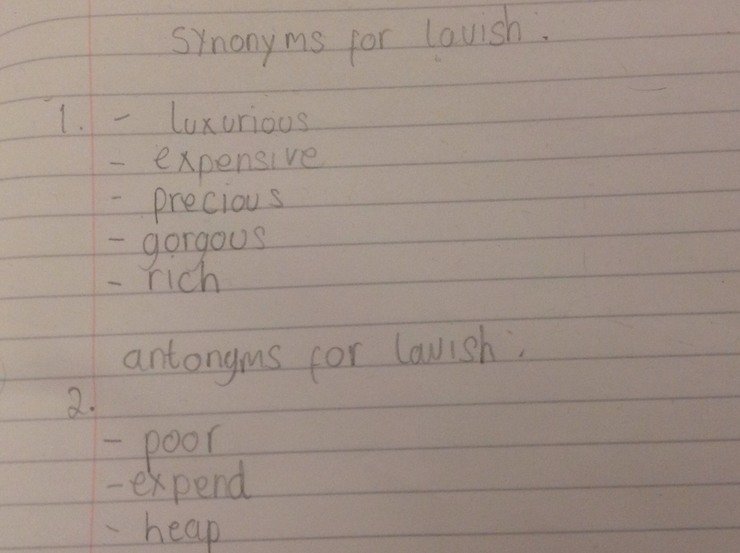 Synonyms for lavish.
1. - luxurious
- expensive
- precious
- gorgous
- rich
antonyms for lavish.
2.
- poor
- expend
- heap